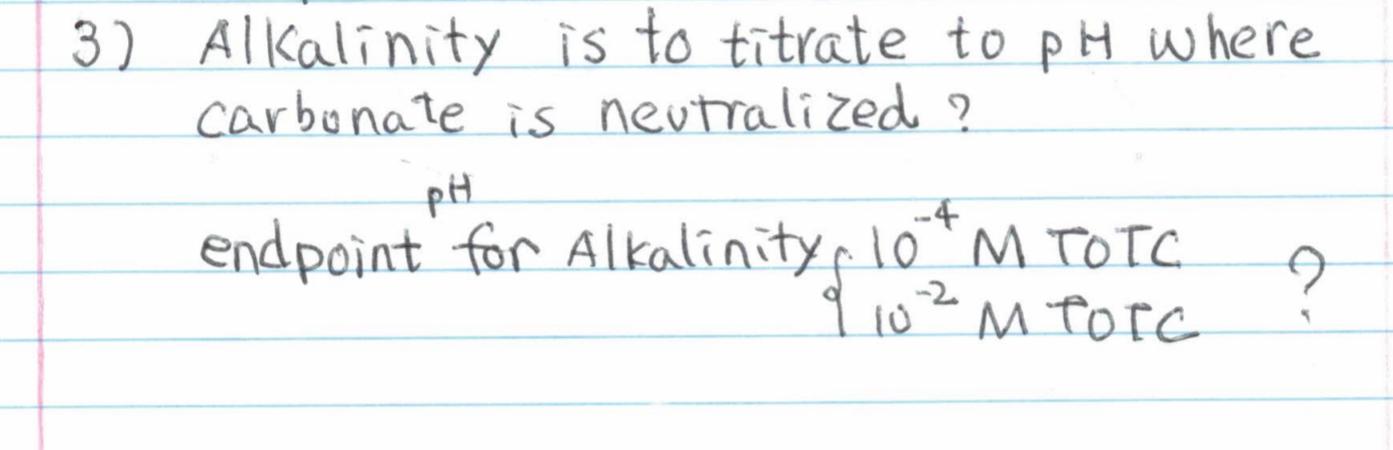 3) Alkalinity is to titrate to pH where
carbonate is neutralized ?
pH
endpoint for Alkalinity { 10⁻⁴ M TOTC
10⁻² M TOTC ?